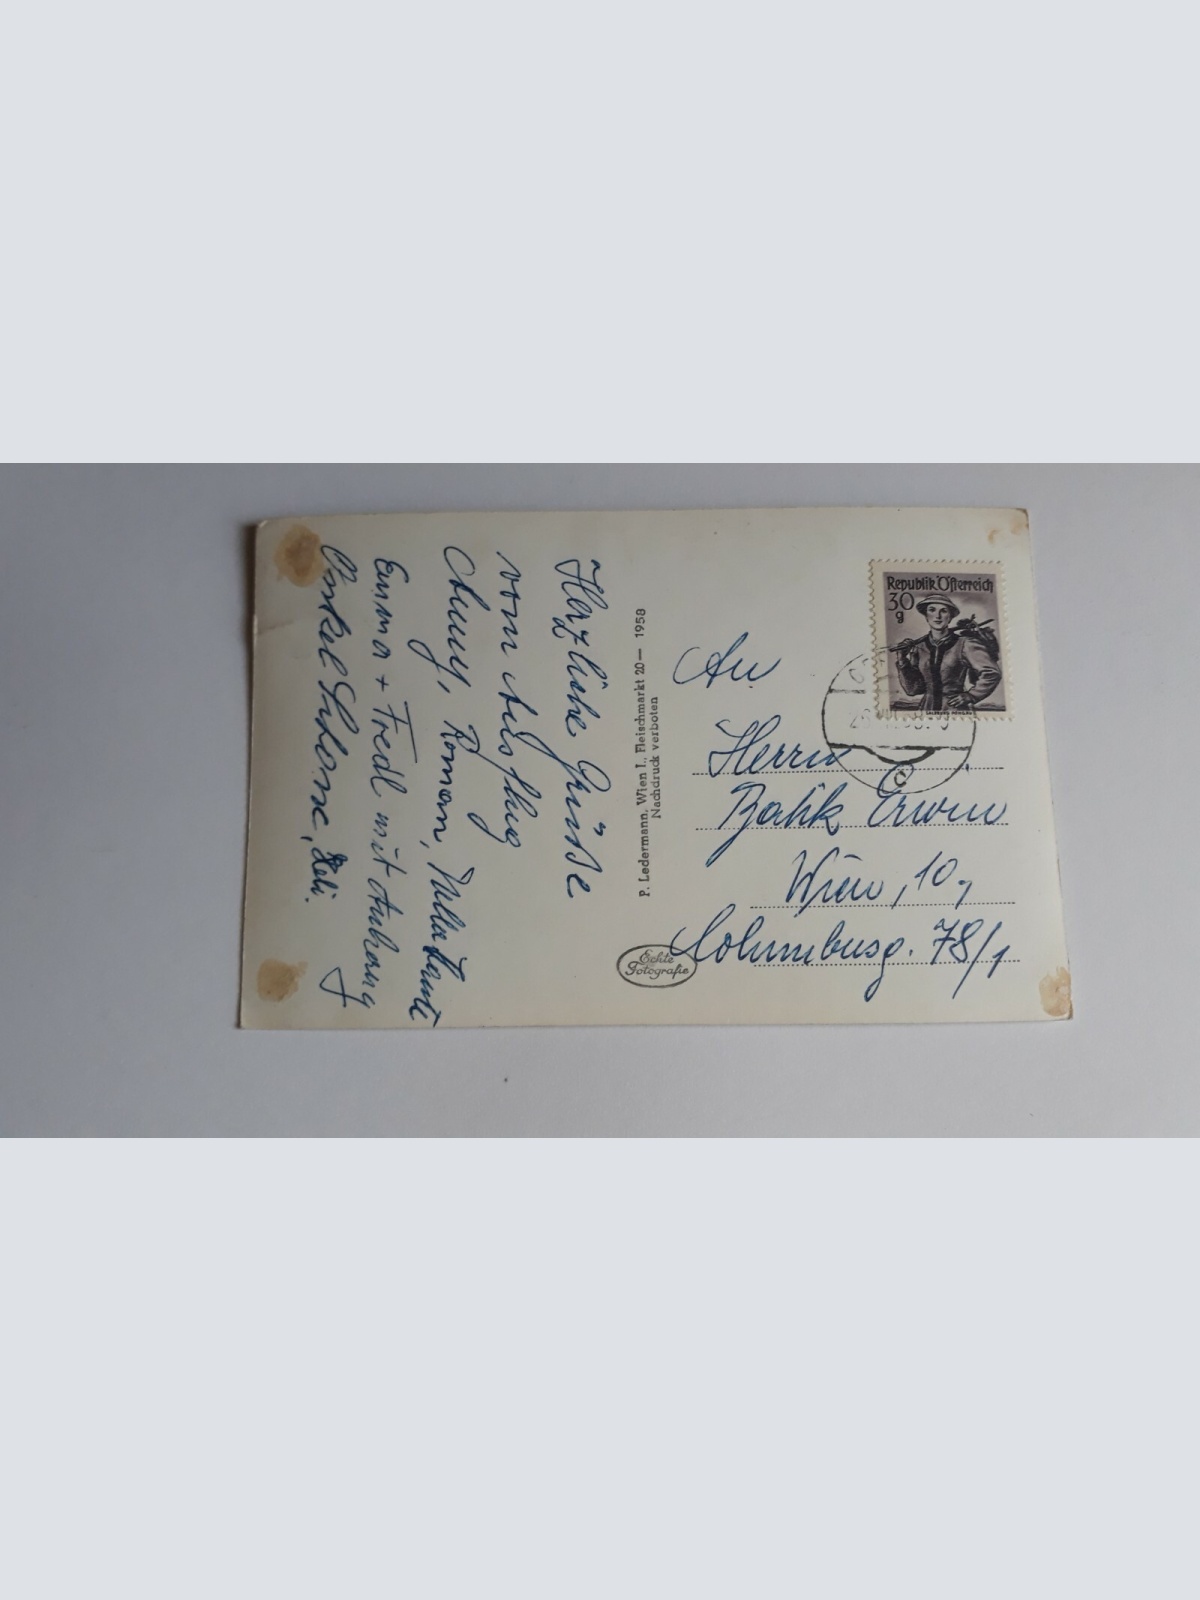 Herzliche Grüsse
vom Ausflug
Roman, Tante
Emma + Fredl mit Anhang
Onkel
P. Ledermann, Wien I., Fleischmarkt 20— 1958
Nachdruck verboten
Echte
Fotografie
Republik Österreich
30
g
An
Herrn
Erwin
Wien, 10,
Columbusg. 78/1